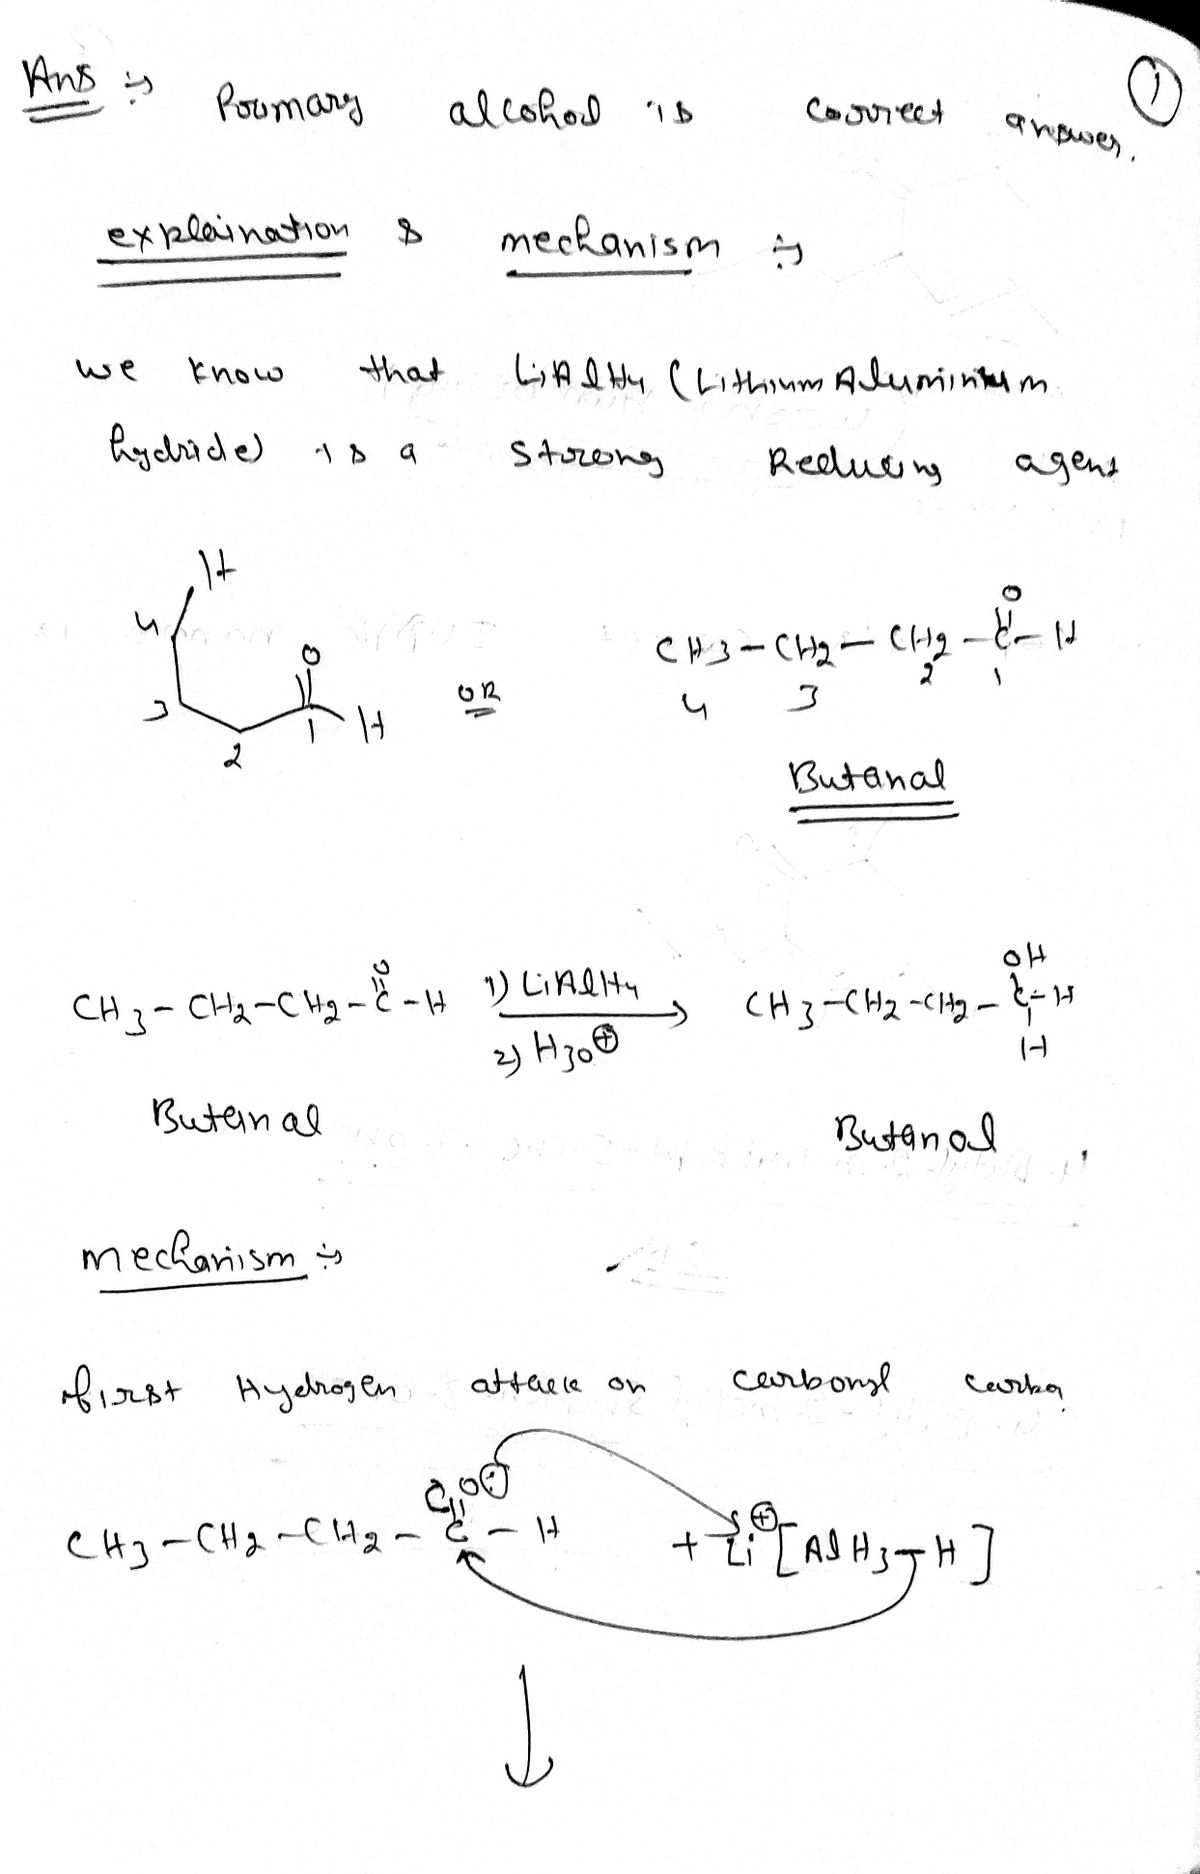 Ans :→ Poumary alcohol is coorrect answer.
1
explaination & mechanism :→
we know that LiAlH4 (Lithium Aluminium
hydride) is a strong Reducing agent
H
4
3
2
1
O
H
OR
O
CH3 - CH2 - CH2 - C - H
4 3 2 1
Butanal
O
CH3 - CH2 - CH2 - C - H
1) LiAlH4
2) H3O⊕
OH
CH3 - CH2 - CH2 - C - H
H
Butanal
Butanol
mechanism :→
first Hydrogen attack on carbonyl carbo
O
CH3 - CH2 - CH2 - C - H + Li⊕ [AlH3 - H]